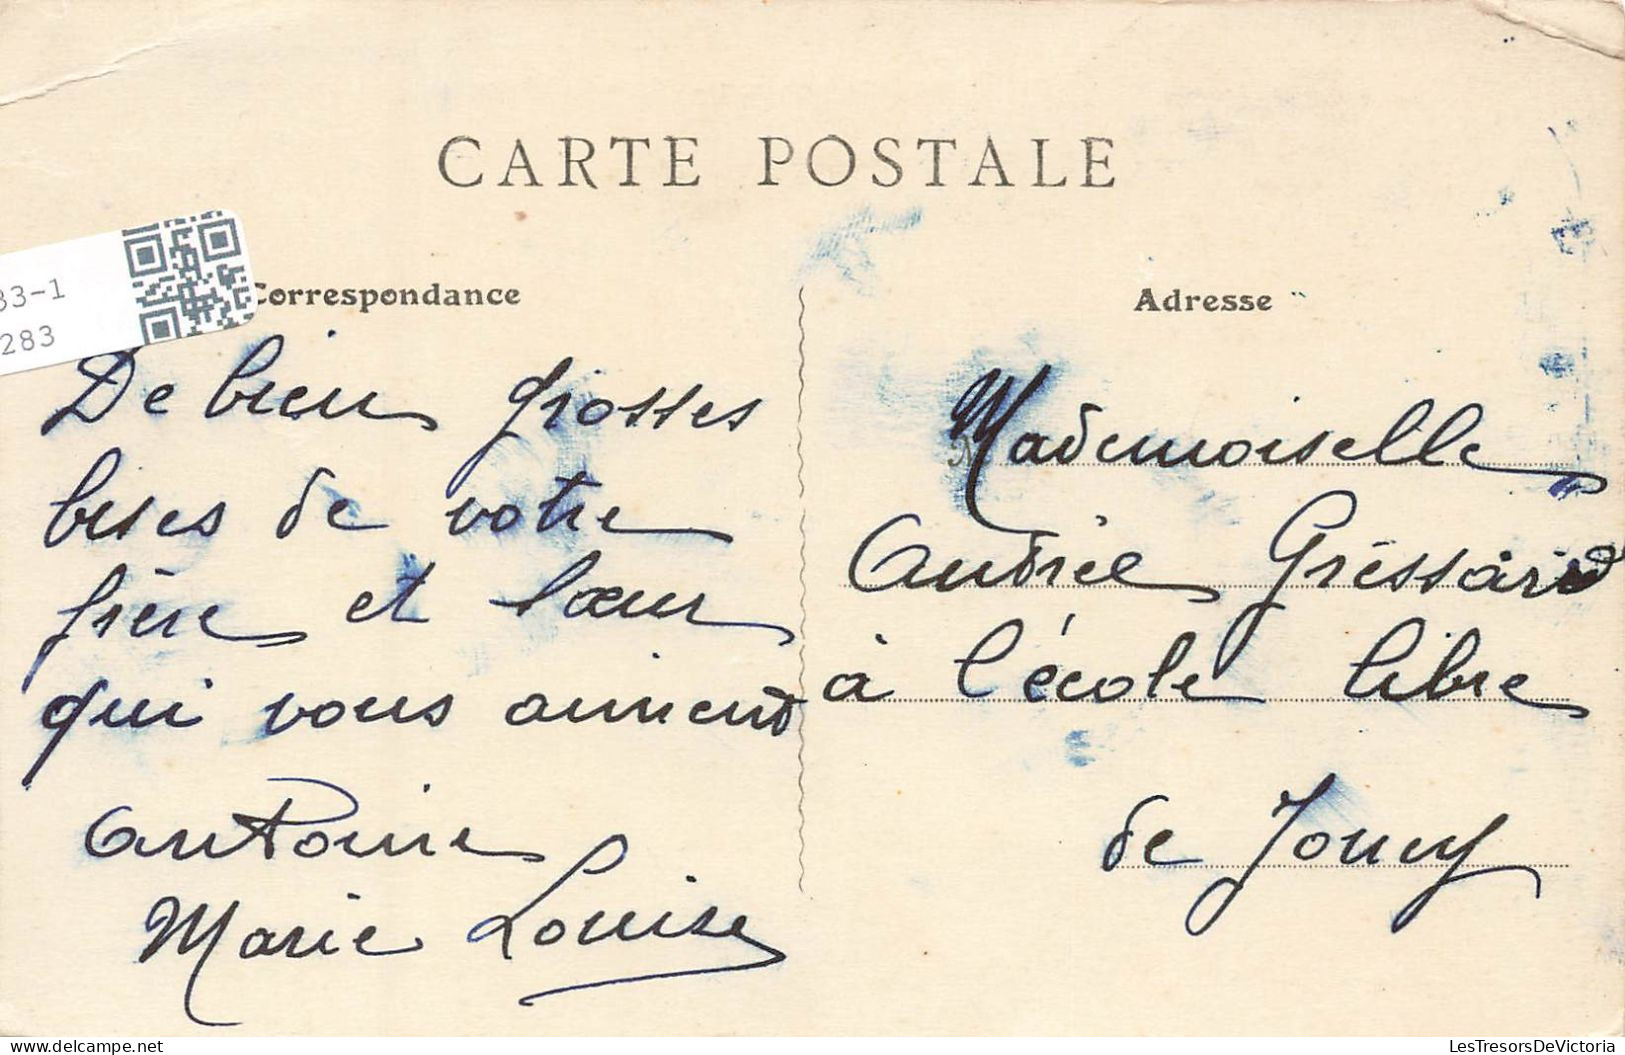 CARTE POSTALE
33-1
283
Correspondance
De bien grosses
bises de votre
frère et sœur
qui vous aiment
Antoine
Marie Louise
Adresse
M
Mademoiselle
Andrée Gressard
à l'école libre
de Joucy
LesTresorsDeVictoria
delcampe.net